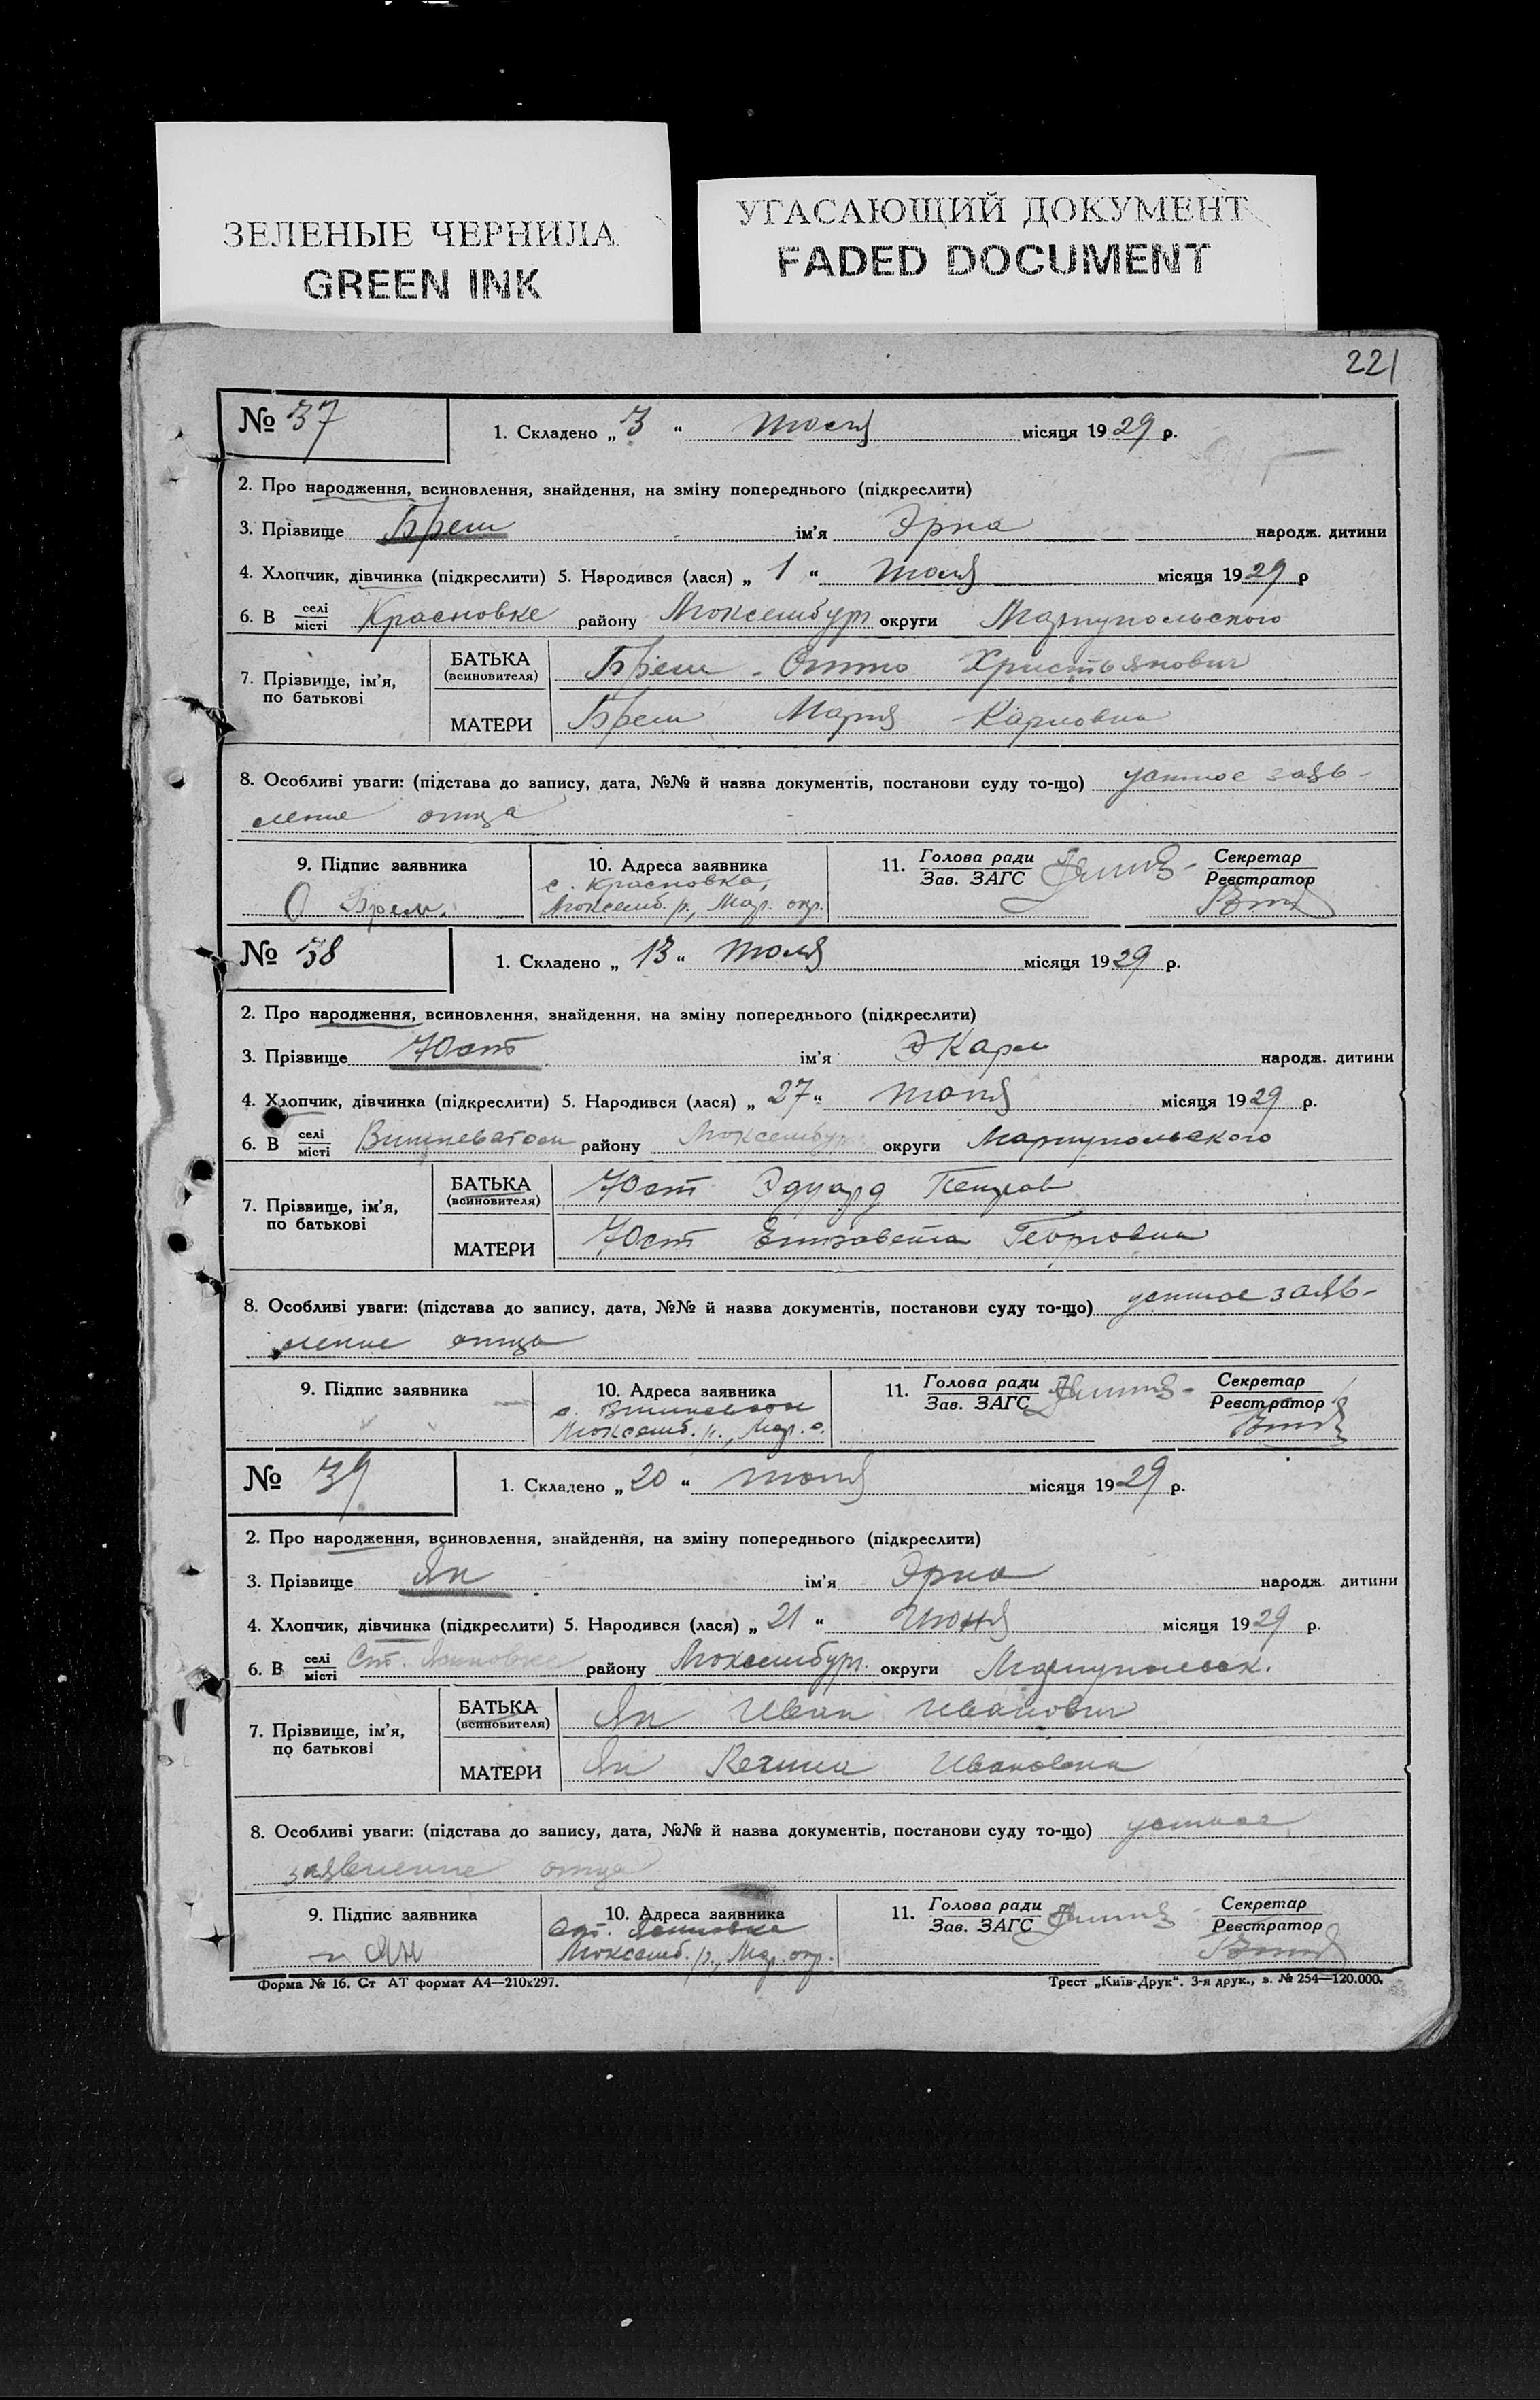 ЗЕЛЕНЫЕ ЧЕРНИЛА
GREEN INK
УГАСАЮЩИЙ ДОКУМЕНТ
FADED DOCUMENT
221
№ 37
1. Складено „ 3 “ Июля місяця 1929 р.
2. Про народження, всиновлення, знайдення, на зміну попереднього (підкреслити)
3. Прізвище Брем ім'я Эрна народж. дитини
4. Хлопчик, дівчинка (підкреслити) 5. Народився (лася) „ 1 “ Июля місяця 1929 р
6. В селі місті Красновке району Люксембург. округи Мариупольского
7. Прізвище, ім'я, по батькові
БАТЬКА (всиновителя) Брем Отто Христьянович
МАТЕРИ Брем Мария Карловна
8. Особливі уваги: (підстава до запису, дата, №№ й назва документів, постанови суду то-що) устное заяв-
ление отца
9. Підпис заявника 10. Адреса заявника 11. Голова ради Зав. ЗАГС Секретар Реєстратор
О Брем. с. Красновка,
Люксемб. р., Мар. окр.
№ 38
1. Складено „ 13 “ Июля місяця 1929 р.
2. Про народження, всиновлення, знайдення, на зміну попереднього (підкреслити)
3. Прізвище Юст ім'я Карл народж. дитини
4. Хлопчик, дівчинка (підкреслити) 5. Народився (лася) „ 27 “ місяця 1929 р.
6. В селі місті району Люксембург округи Мариупольского
7. Прізвище, ім'я, по батькові
БАТЬКА (всиновителя) Юст Эдуард Петров
МАТЕРИ Юст Елизавета Георговна
8. Особливі уваги: (підстава до запису, дата, №№ й назва документів, постанови суду то-що) устное заяв-
ление отца
9. Підпис заявника 10. Адреса заявника 11. Голова ради Зав. ЗАГС Секретар Реєстратор
Люксемб. р., Мар. о.
№ 39
1. Складено „ 20 “ Июля місяця 1929 р.
2. Про народження, всиновлення, знайдення, на зміну попереднього (підкреслити)
3. Прізвище Ян ім'я Эрна народж. дитини
4. Хлопчик, дівчинка (підкреслити) 5. Народився (лася) „ 21 “ Июня місяця 1929 р.
6. В селі місті Ст. району Люксембург. округи Мариупольск.
7. Прізвище, ім'я, по батькові
БАТЬКА (всиновителя) Ян Иван Иванович
МАТЕРИ Ян Регина Ивановна
8. Особливі уваги: (підстава до запису, дата, №№ й назва документів, постанови суду то-що) устное
заявление отца
9. Підпис заявника 10. Адреса заявника 11. Голова ради Зав. ЗАГС Секретар Реєстратор
Ян Ст.
Люксемб. р., Мар. окр.
Форма № 16. Ст АТ формат А4—210х297. Трест „Київ-Друк“. 3-я друк., з. № 254—120.000.